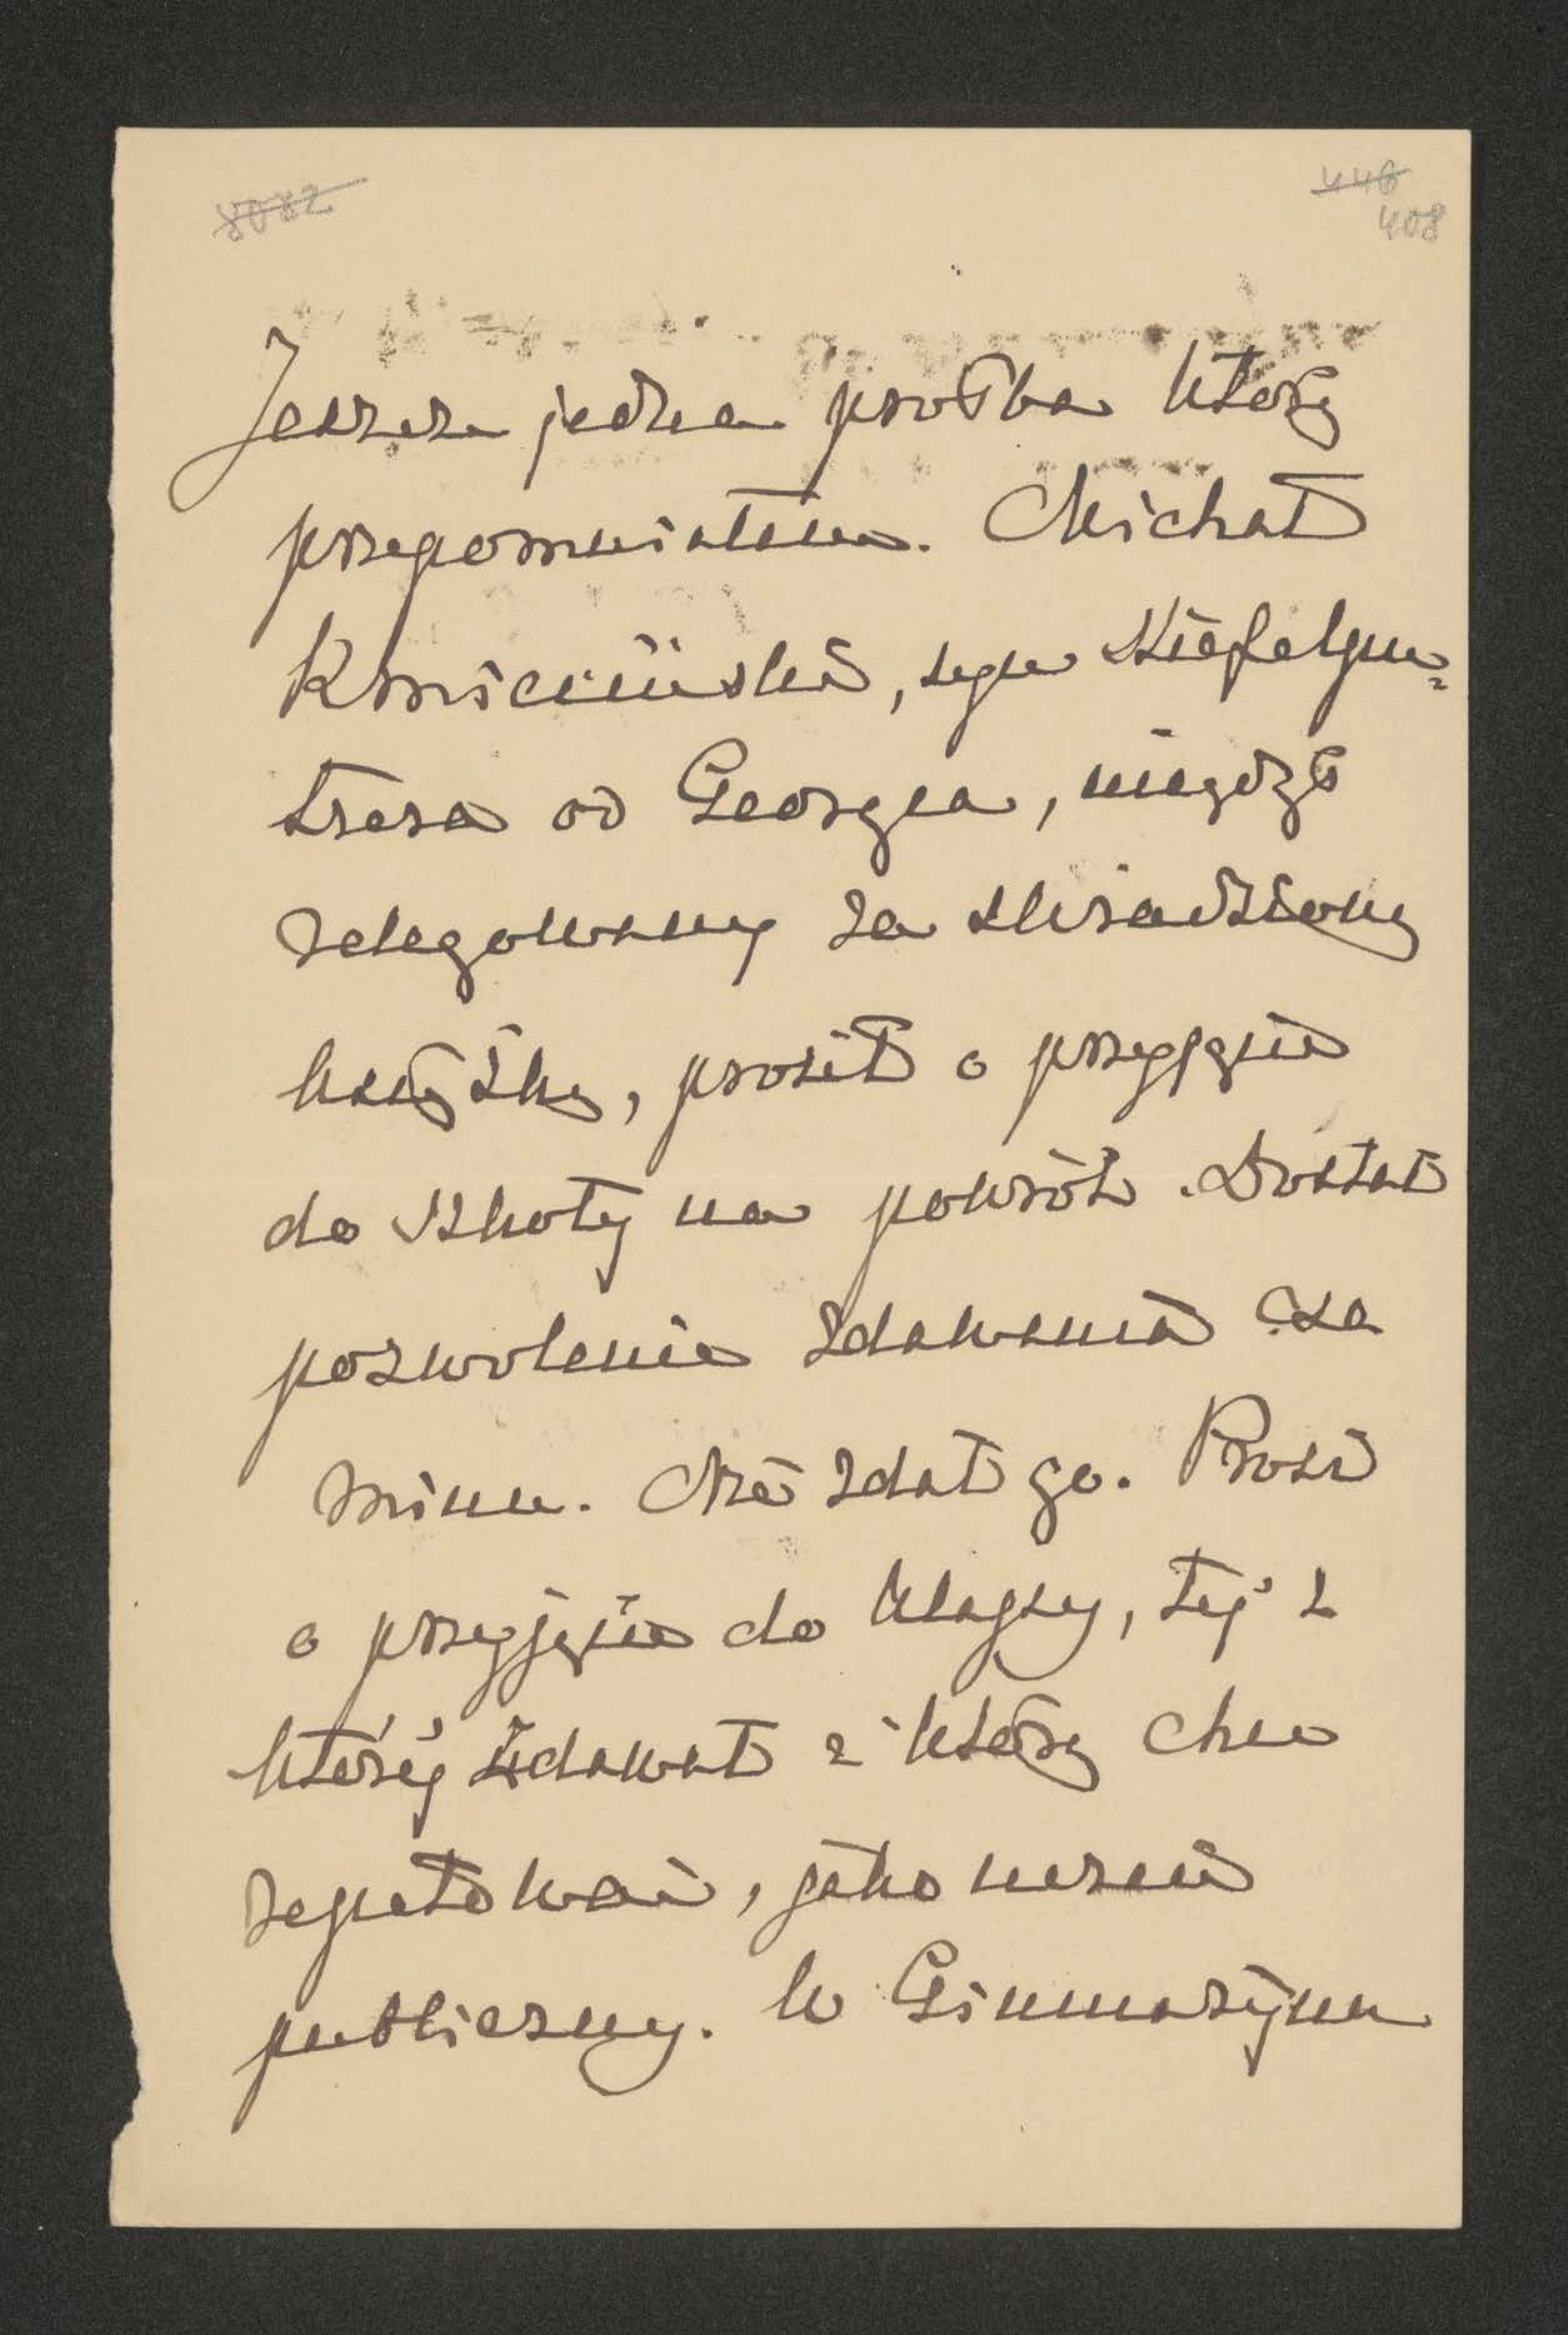 8082
446
408
Jeszcze jedna prośba którą
przepomniałem. Michał
syn
tresa od Georgea, niegdyś
relegowany za skradzioną
książkę, prosił o przyjęcie
do szkoły na powrót. Dostał
pozwolenie zdawania eza
minu. Nie zdał go. Prosi
o przyjęcie do klassy, tej z
której zdawał i którą chce
repetować, jako uczeń
publiczny. W Gimnazyum